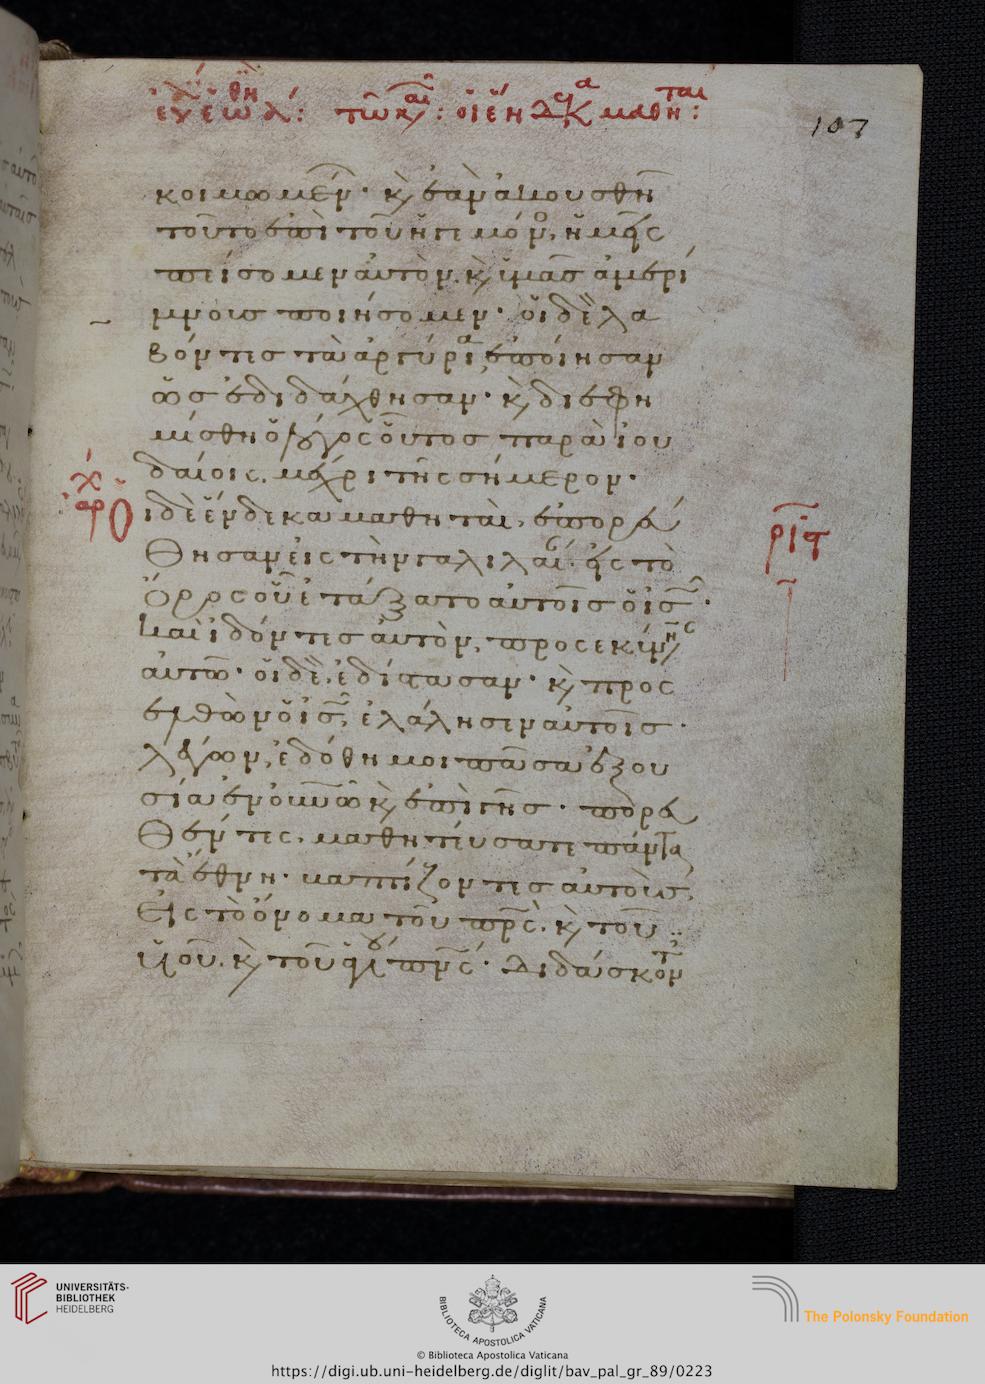 107
κοιμωμέν· κ̀ ἐὰν ἀκουσθῆ
τοῦτο ἐπὶ τοῦ ἡγεμόν, ἡμεῖς
πείσομεν αὐτὸν. κ̀ ὑμᾶσ ἀμερί
μνουσ ποιήσομεν· οἱ δὲ λα
βόντεσ τὰ ἀργύρια ἐποίησαν
ὡσ ἐδιδάχθησαν· κ̀ διεφη
μίσθη ὁ λόγος οὗτοσ παρὰ ἰου
δαίοις. μέχρι τῆς σήμερον·
Οἱ δὲ ἕνδεκα μαθηταὶ, ἐπορεύ
θησαν εἰς τὴν γαλιλαί. εἰς τὸ
ὄρος οὗ ἐτάξατο αὐτοῖσ ὁ ισ·
καὶ ἰδόντεσ αὐτὸν, προσεκύνης
αὐτῶ· οἱ δὲ, ἐδίστασαν· κ̀ προς
ελθὼν ὁ ισ, ἐλάλησεν αὐτοῖσ·
λέγων, ἐδόθη μοι πᾶσα ἐξου
σία ἐν οὐνῶ κ̀ ἐπὶ γῆσ· πορεύ
θέντες, μαθητεύσατε πάντα
τὰ ἔθνη· βαπτίζοντεσ αὐτοὺσ,
εἰς τὸ ὄνομα τοῦ πρς. κ̀ τοῦ
υἱοῦ. κ̀ τοῦ ἁγί πνς· διδάσκοντ
UNIVERSITÄTS-
BIBLIOTHEK
HEIDELBERG
BIBLIOTECA APOSTOLICA VATICANA
The Polonsky Foundation
© Biblioteca Apostolica Vaticana
https://digi.ub.uni-heidelberg.de/diglit/bav_pal_gr_89/0223